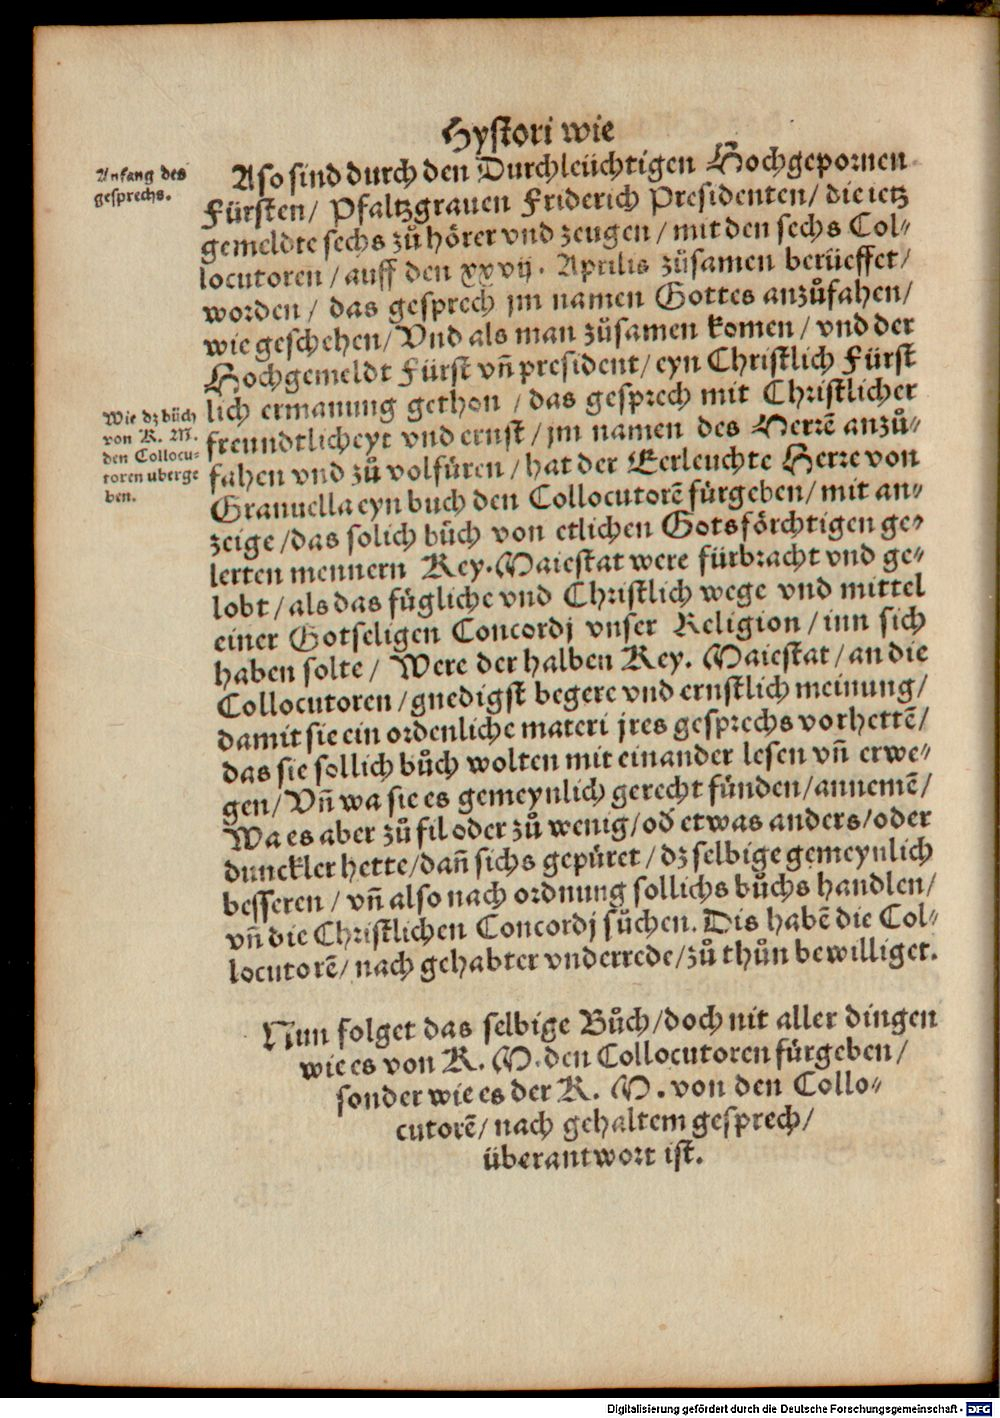 Hystori wie
Anfang des
gesprechs.
Aso sind durch den Durchleüchtigen Hochgepornen
Fürsten/ Pfaltzgrauen Friderich Presidenten/ die ietz
gemeldte sechs zů hörer vnd zeugen/ mit den sechs Col⸗
locutoren/ auff den xxvij. Aprilis zůsamen berüeffet/
worden/ das gesprech jm namen Gottes anzůfahen/
wie geschehen/ Vnd als man zůsamen komen/ vnd der
Hochgemeldt Fürst vñ president/ eyn Christlich Fürst
lich ermanung gethon/ das gesprech mit Christlicher
Wie dz bůch
von K. M.
den Collocu⸗
toren uberge
ben.
freundtlicheyt vnd ernst/ jm namen des Herrẽ anzů⸗
fahen vnd zů volfüren/ hat der Eerleuchte Herre von
Granuella eyn buch den Collocutorẽ fürgeben/ mit an⸗
zeige/ das solich bůch von etlichen Gotsförchtigen ge⸗
lerten mennern Key. Maiestat were fürbracht vnd ge⸗
lobt/ als das fügliche vnd Christlich wege vnd mittel
einer Gotseligen Concordj vnser Religion/ inn sich
haben solte/ Were der halben Key. Maiestat/ an die
Collocutoren/ gnedigst begere vnd ernstlich meinung/
damit sie ein ordenliche materi jres gesprechs vorhettẽ/
das sie sollich bůch wolten mit einander lesen vñ erwe⸗
gen/ Vñ wa sie es gemeynlich gerecht fünden/ annemẽ/
Wa es aber zů fil oder zů wenig/ od etwas anders/ oder
dunckler hette/ dañ sichs gepüret/ dz selbige gemeynlich
besseren/ vñ also nach ordnung sollichs bůchs handlen/
vñ die Christlichen Concordj sůchen. Dis habẽ die Col⸗
locutorẽ/ nach gehabter vnderrede/ zů thůn bewilliget.
Nun folget das selbige Bůch/ doch nit aller dingen
wie es von K. M. den Collocutoren fürgeben/
sonder wie es der K. M. von den Collo⸗
cutorẽ/ nach gehaltem gesprech/
überantwort ist.
Digitalisierung gefördert durch die Deutsche Forschungsgemeinschaft - DFG